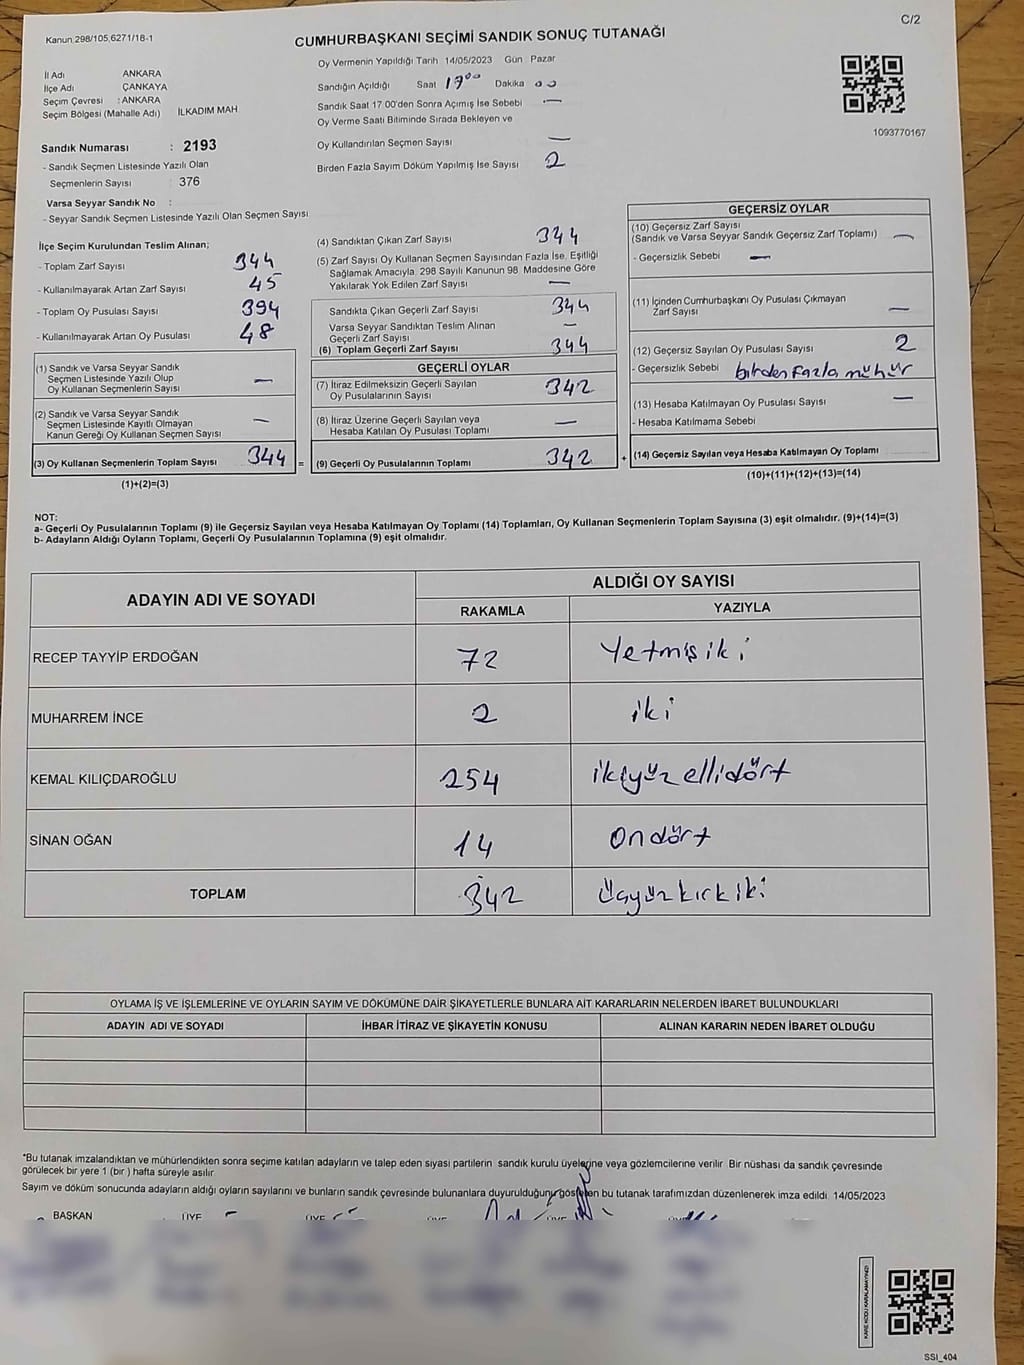 C/2
Kanun 298/105,6271/18-1
CUMHURBAŞKANI SEÇİMİ SANDIK SONUÇ TUTANAĞI
İl Adı ANKARA
İlçe Adı ÇANKAYA
Seçim Çevresi : ANKARA
Seçim Bölgesi (Mahalle Adı) İLKADIM MAH
Sandık Numarası : 2193
- Sandık Seçmen Listesinde Yazılı Olan
Seçmenlerin Sayısı : 376
Varsa Seyyar Sandık No :
- Seyyar Sandık Seçmen Listesinde Yazılı Olan Seçmen Sayısı
Oy Vermenin Yapıldığı Tarih 14/05/2023 Gün Pazar
Sandığın Açıldığı Saat 17 00 Dakika 00
Sandık Saat 17.00'den Sonra Açımış İse Sebebi —
Oy Verme Saati Bitiminde Sırada Bekleyen ve
Oy Kullandırılan Seçmen Sayısı —
Birden Fazla Sayım Döküm Yapılmış İse Sayısı 2
1093770167
İlçe Seçim Kurulundan Teslim Alınan;
- Toplam Zarf Sayısı 344
- Kullanılmayarak Artan Zarf Sayısı 45
- Toplam Oy Pusulası Sayısı 394
- Kullanılmayarak Artan Oy Pusulası 48
(1) Sandık ve Varsa Seyyar Sandık
Seçmen Listesinde Yazılı Olup
Oy Kullanan Seçmenlerin Sayısı —
(2) Sandık ve Varsa Seyyar Sandık
Seçmen Listesinde Kayıtlı Olmayan
Kanun Gereği Oy Kullanan Seçmen Sayısı —
(3) Oy Kullanan Seçmenlerin Toplam Sayısı 344 =
(1)+(2)=(3)
(4) Sandıktan Çıkan Zarf Sayısı 344
(5) Zarf Sayısı Oy Kullanan Seçmen Sayısından Fazla İse, Eşitliği
Sağlamak Amacıyla, 298 Sayılı Kanunun 98. Maddesine Göre
Yakılarak Yok Edilen Zarf Sayısı —
Sandıkta Çıkan Geçerli Zarf Sayısı 344
Varsa Seyyar Sandıktan Teslim Alınan
Geçerli Zarf Sayısı —
(6) Toplam Geçerli Zarf Sayısı 344
GEÇERLİ OYLAR
(7) İtiraz Edilmeksizin Geçerli Sayılan
Oy Pusulalarının Sayısı 342
(8) İtiraz Üzerine Geçerli Sayılan veya
Hesaba Katılan Oy Pusulası Toplamı —
(9) Geçerli Oy Pusulalarının Toplamı 342 +
GEÇERSİZ OYLAR
(10) Geçersiz Zarf Sayısı
(Sandık ve Varsa Seyyar Sandık Geçersiz Zarf Toplamı) —
- Geçersizlik Sebebi —
(11) İçinden Cumhurbaşkanı Oy Pusulası Çıkmayan
Zarf Sayısı —
(12) Geçersiz Sayılan Oy Pusulası Sayısı 2
- Geçersizlik Sebebi birden fazla mühür
(13) Hesaba Katılmayan Oy Pusulası Sayısı —
- Hesaba Katılmama Sebebi
(14) Geçersiz Sayılan veya Hesaba Katılmayan Oy Toplamı
(10)+(11)+(12)+(13)=(14)
NOT:
a- Geçerli Oy Pusulalarının Toplamı (9) ile Geçersiz Sayılan veya Hesaba Katılmayan Oy Toplamı (14) Toplamları, Oy Kullanan Seçmenlerin Toplam Sayısına (3) eşit olmalıdır. (9)+(14)=(3)
b- Adayların Aldığı Oyların Toplamı, Geçerli Oy Pusulalarının Toplamına (9) eşit olmalıdır.
ADAYIN ADI VE SOYADI
ALDIĞI OY SAYISI
RAKAMLA YAZIYLA
RECEP TAYYİP ERDOĞAN 72 Yetmişiki
MUHARREM İNCE 2 iki
KEMAL KILIÇDAROĞLU 254 ikiyüzellidört
SİNAN OĞAN 14 Ondört
TOPLAM 342 Üçyüzkırkiki
OYLAMA İŞ VE İŞLEMLERİNE VE OYLARIN SAYIM VE DÖKÜMÜNE DAİR ŞİKAYETLERLE BUNLARA AİT KARARLARIN NELERDEN İBARET BULUNDUKLARI
ADAYIN ADI VE SOYADI İHBAR İTİRAZ VE ŞİKAYETİN KONUSU ALINAN KARARIN NEDEN İBARET OLDUĞU
*Bu tutanak imzalandıktan ve mühürlendikten sonra seçime katılan adayların ve talep eden siyasi partilerin sandık kurulu üyelerine veya gözlemcilerine verilir. Bir nüshası da sandık çevresinde
görülecek bir yere 1 (bir ) hafta süreyle asılır.
Sayım ve döküm sonucunda adayların aldığı oyların sayılarını ve bunların sandık çevresinde bulunanlara duyurulduğunu gösteren bu tutanak tarafımızdan düzenlenerek imza edildi. 14/05/2023
BAŞKAN ÜYE ÜYE ÜYE ÜYE ÜYE
KARE KODU KARALAMAYINIZ!
SSI_404